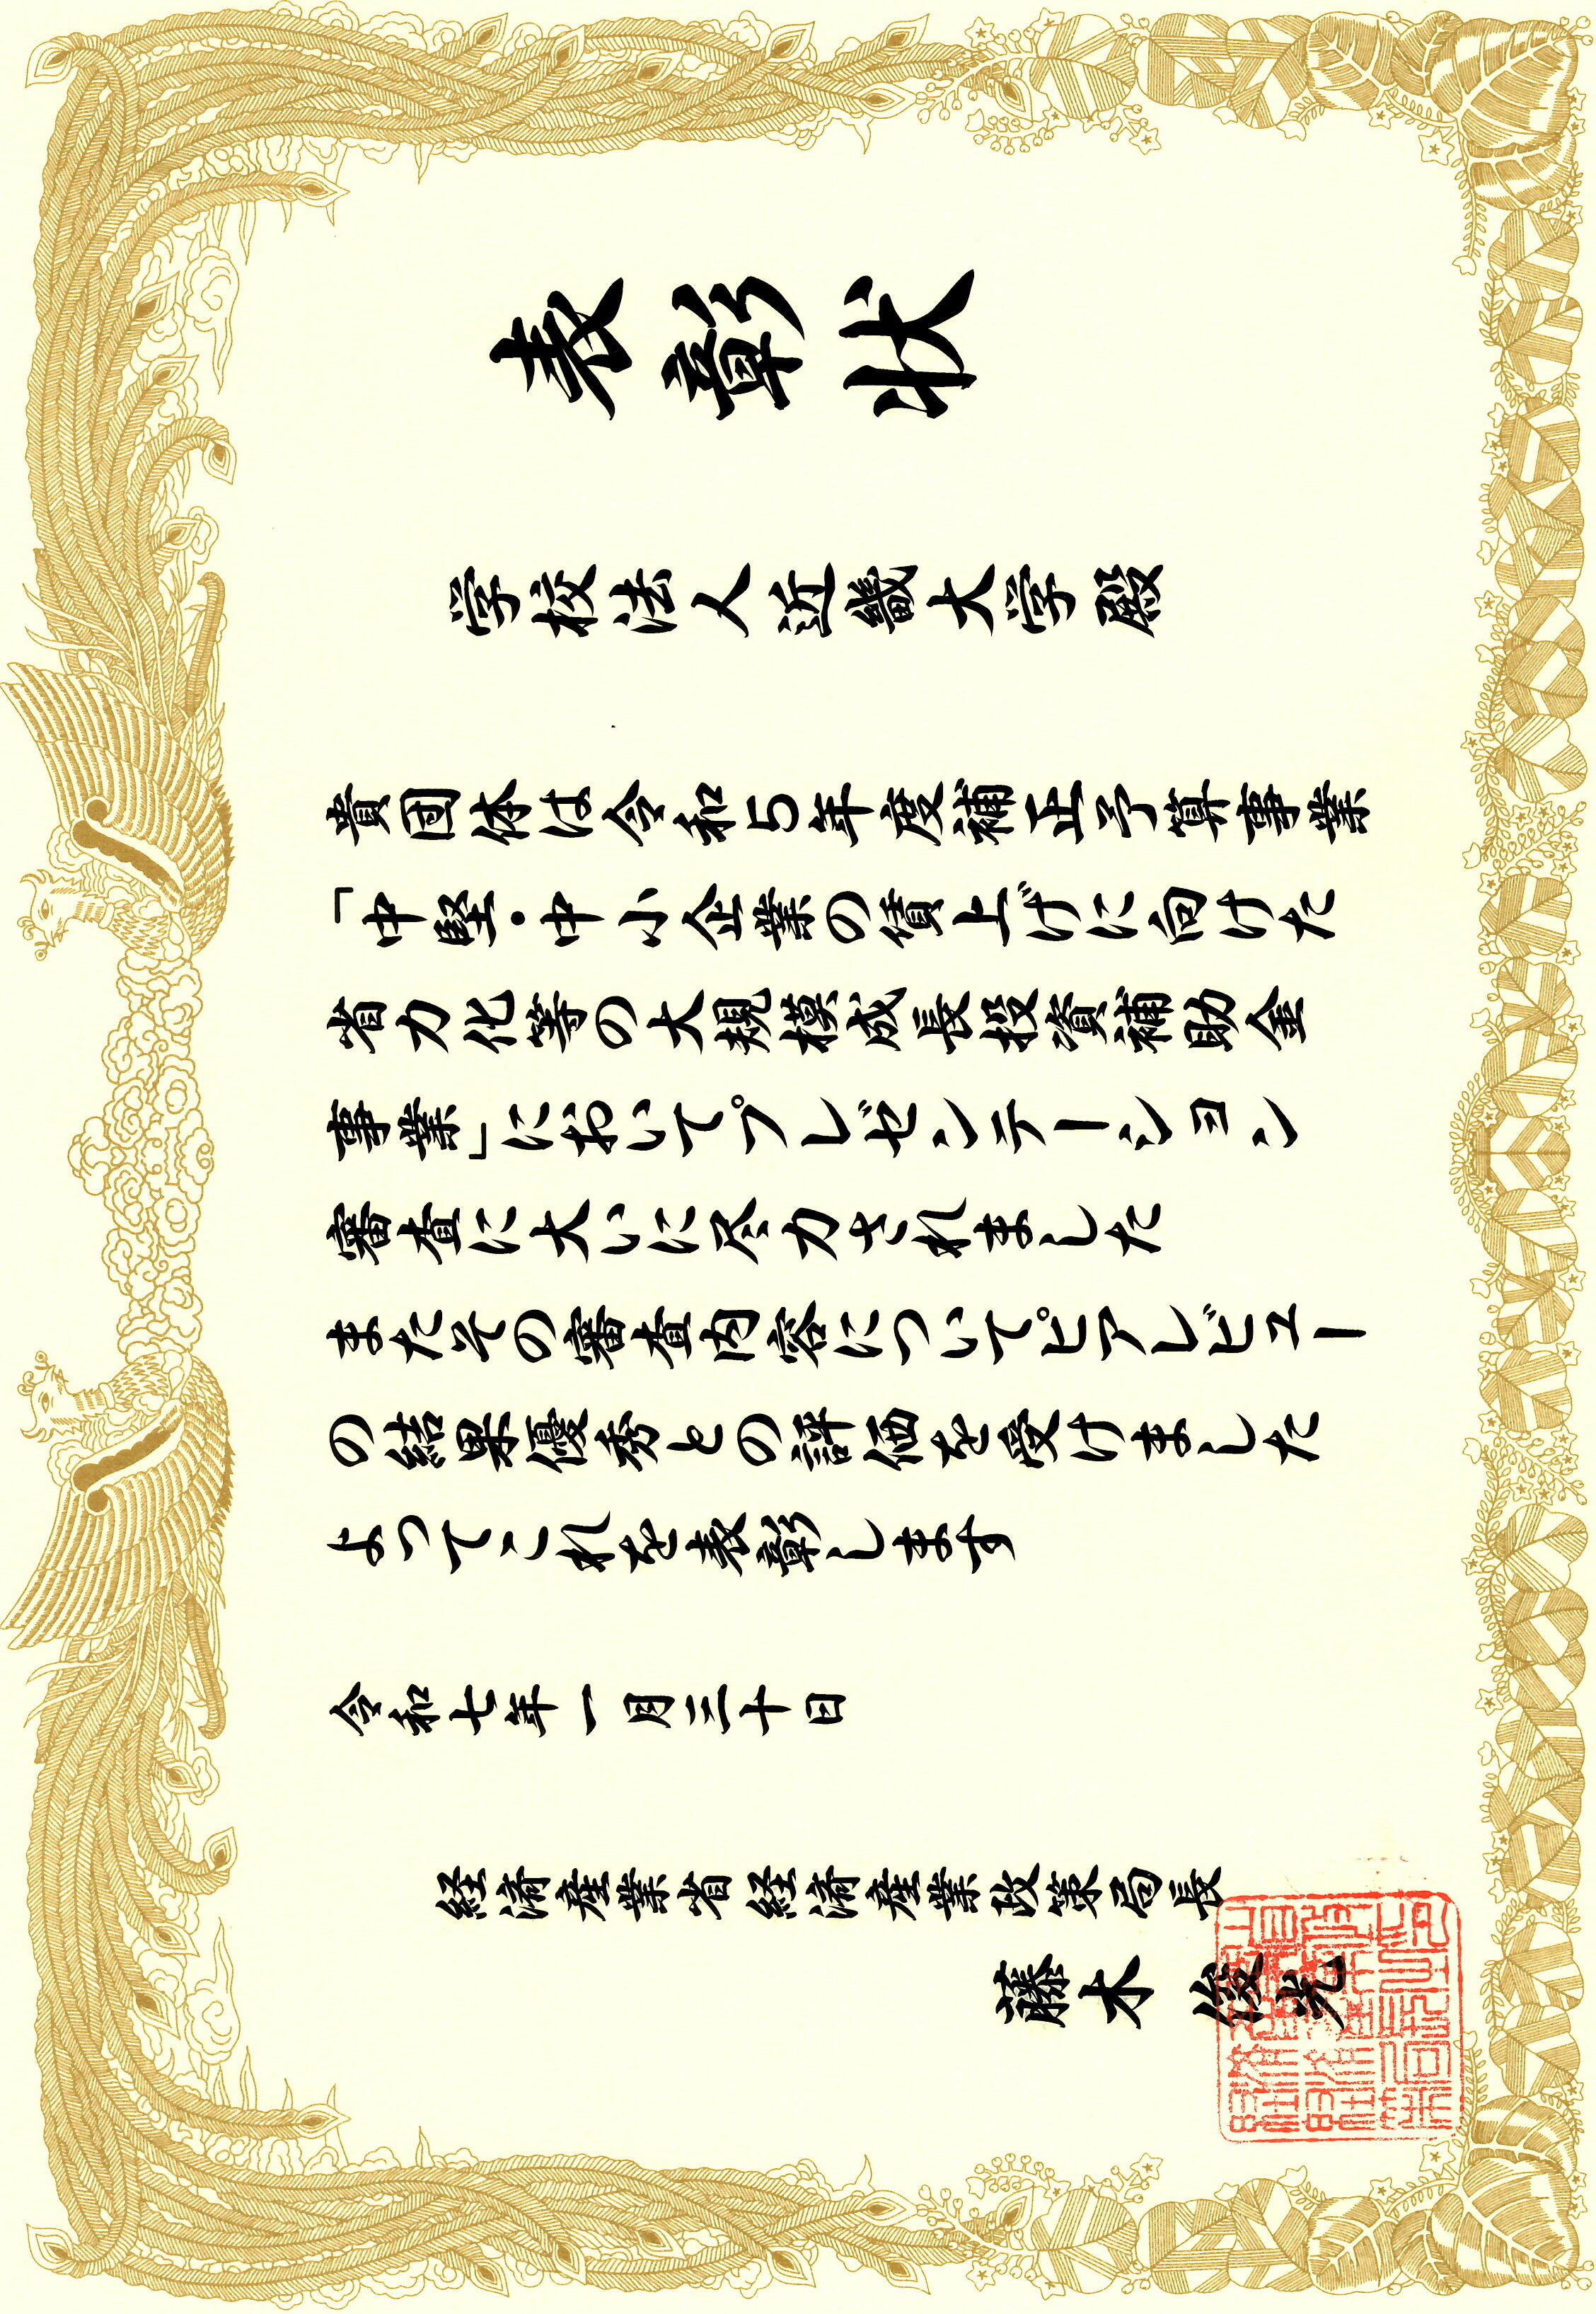 表彰状
学校法人近畿大学殿
貴団体は令和5年度補正予算事業
「中堅・中小企業の賃上げに向けた
省力化等の大規模成長投資補助金
事業」においてプレゼンテーション
審査に大いに尽力されました
またその審査内容についてピアレビュー
の結果優秀との評価を受けました
よってこれを表彰します
令和七年一月三十日
経済産業省経済産業政策局長
藤木 俊光